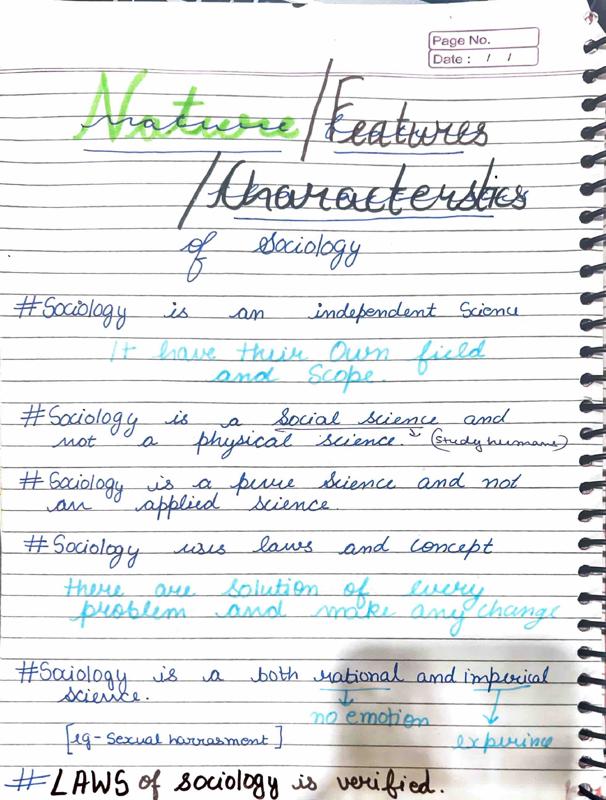 Page No.
Date : / /
Nature/Features
/Characterstics
of Sociology
#Sociology is an independent Science
It have their Own field
and Scope.
#Sociology is a social science and
not a physical science. → (study humans)
#Sociology is a pure science and not
an applied science.
#Sociology uses laws and concept
there are solution of every
problem and make any change
#Sociology is a both rational and imperical
science.
no emotion
[eg - Sexual harrasment]
expirince
#LAWS of sociology is verified.